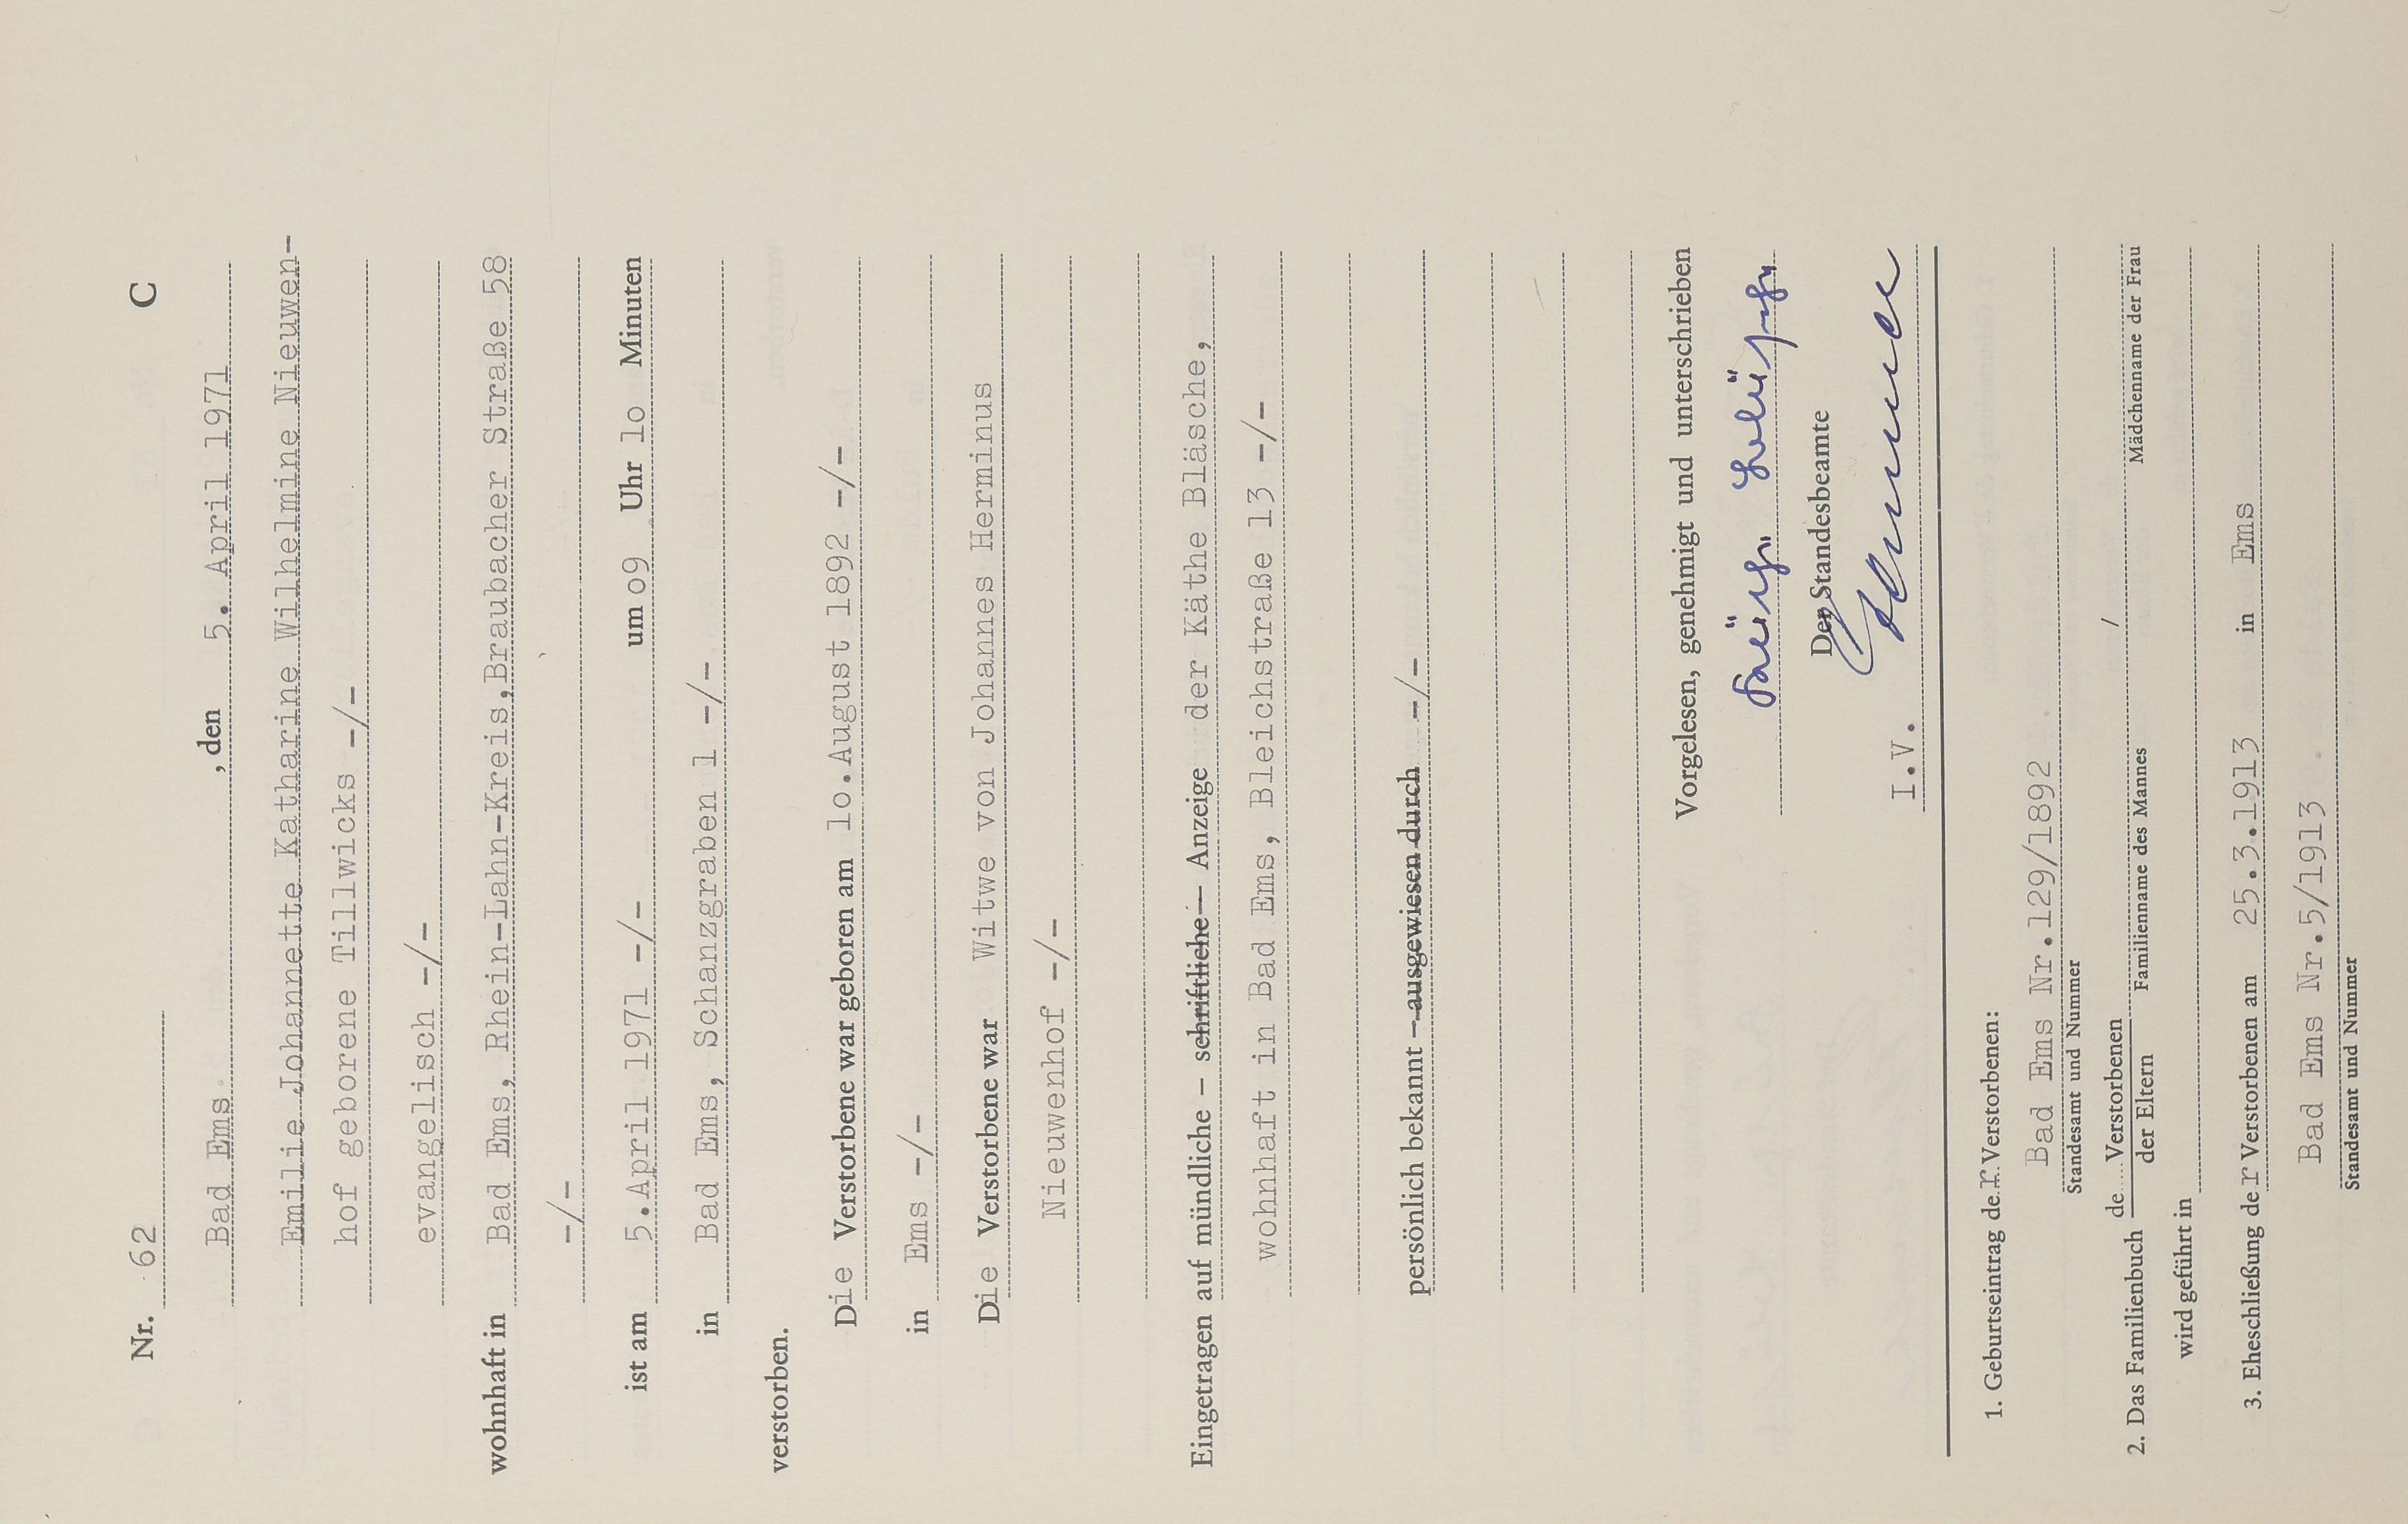 Nr. 62 C
Bad Ems , den 5. April 1971
Emilie Johannette Katharine Wilhelmine Nieuwen-
hof geborene Tillwicks -/-
evangelisch -/-
wohnhaft in Bad Ems, Rhein-Lahn-Kreis,Braubacher Straße 58
-/-
ist am 5.April 1971 -/- um o9 Uhr lo Minuten
in Bad Ems, Schanzgraben 1 -/-
verstorben.
Die Verstorbene war geboren am lo.August 1892 -/-
in Ems -/-
Die Verstorbene war Witwe von Johannes Herminus
Nieuwenhof -/-
Eingetragen auf mündliche – schriftliche – Anzeige der Käthe Bläsche,
wohnhaft in Bad Ems, Bleichstraße 13 -/-
persönlich bekannt – ausgewiesen durch -/-
Vorgelesen, genehmigt und unterschrieben
Der Standesbeamte
I.V.
1. Geburtseintrag der Verstorbenen:
Bad Ems Nr.129/1892
Standesamt und Nummer
2. Das Familienbuch de....Verstorbenen /
der Eltern Familienname des Mannes Mädchenname der Frau
wird geführt in
3. Eheschließung der Verstorbenen am 25.3.1913 in Ems
Bad Ems Nr.5/1913
Standesamt und Nummer